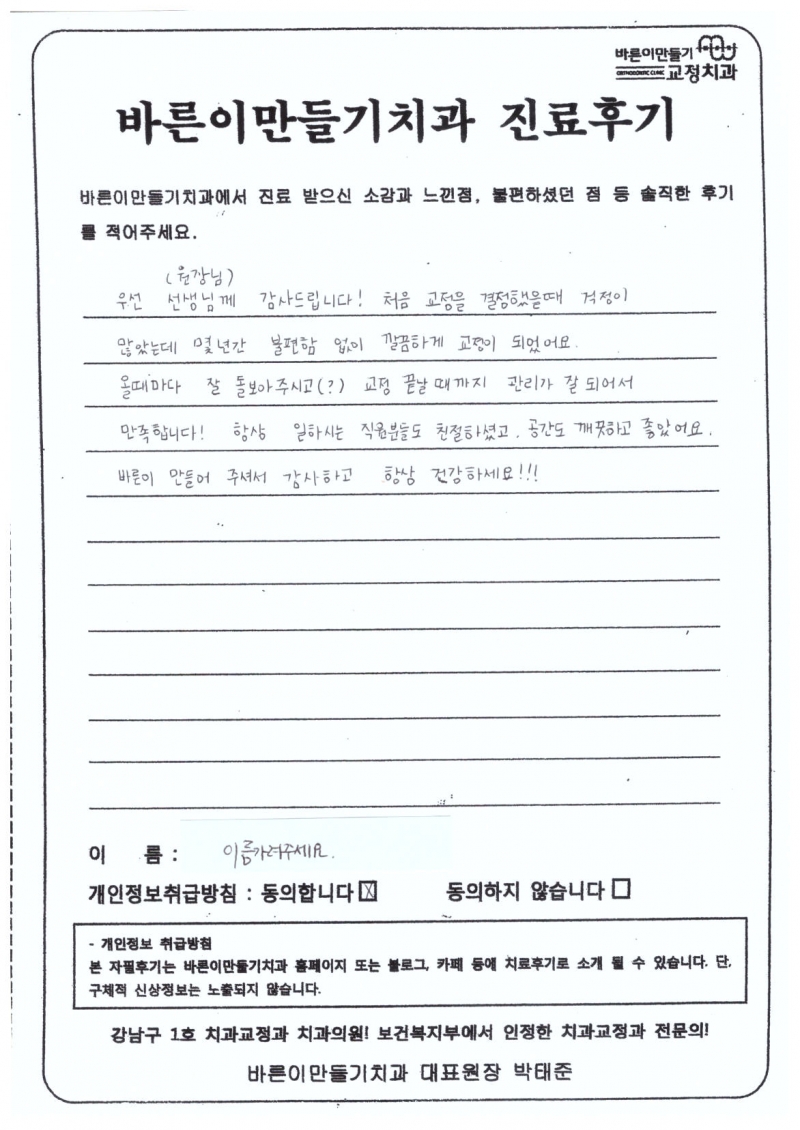 바른이만들기
ORTHODONTIC CLINIC 교정치과
바른이만들기치과 진료후기
바른이만들기치과에서 진료 받으신 소감과 느낀점, 불편하셨던 점 등 솔직한 후기
를 적어주세요.
(원장님)
우선 선생님께 감사드립니다! 처음 교정을 결정했을때 걱정이
많았는데 몇년간 불편함 없이 깔끔하게 교정이 되었어요.
올때마다 잘 돌보아주시고(?) 교정 끝날때까지 관리가 잘 되어서
만족합니다! 항상 일하시는 직원분들도 친절하셨고, 공간도 깨끗하고 좋았어요.
바른이 만들어 주셔서 감사하고 항상 건강하세요!!!
이 름 : 이름가려주세요.
개인정보취급방침 : 동의합니다☒ 동의하지 않습니다☐
- 개인정보 취급방침
본 자필후기는 바른이만들기치과 홈페이지 또는 블로그, 카페 등에 치료후기로 소개 될 수 있습니다. 단,
구체적 신상정보는 노출되지 않습니다.
강남구 1호 치과교정과 치과의원! 보건복지부에서 인정한 치과교정과 전문의!
바른이만들기치과 대표원장 박태준